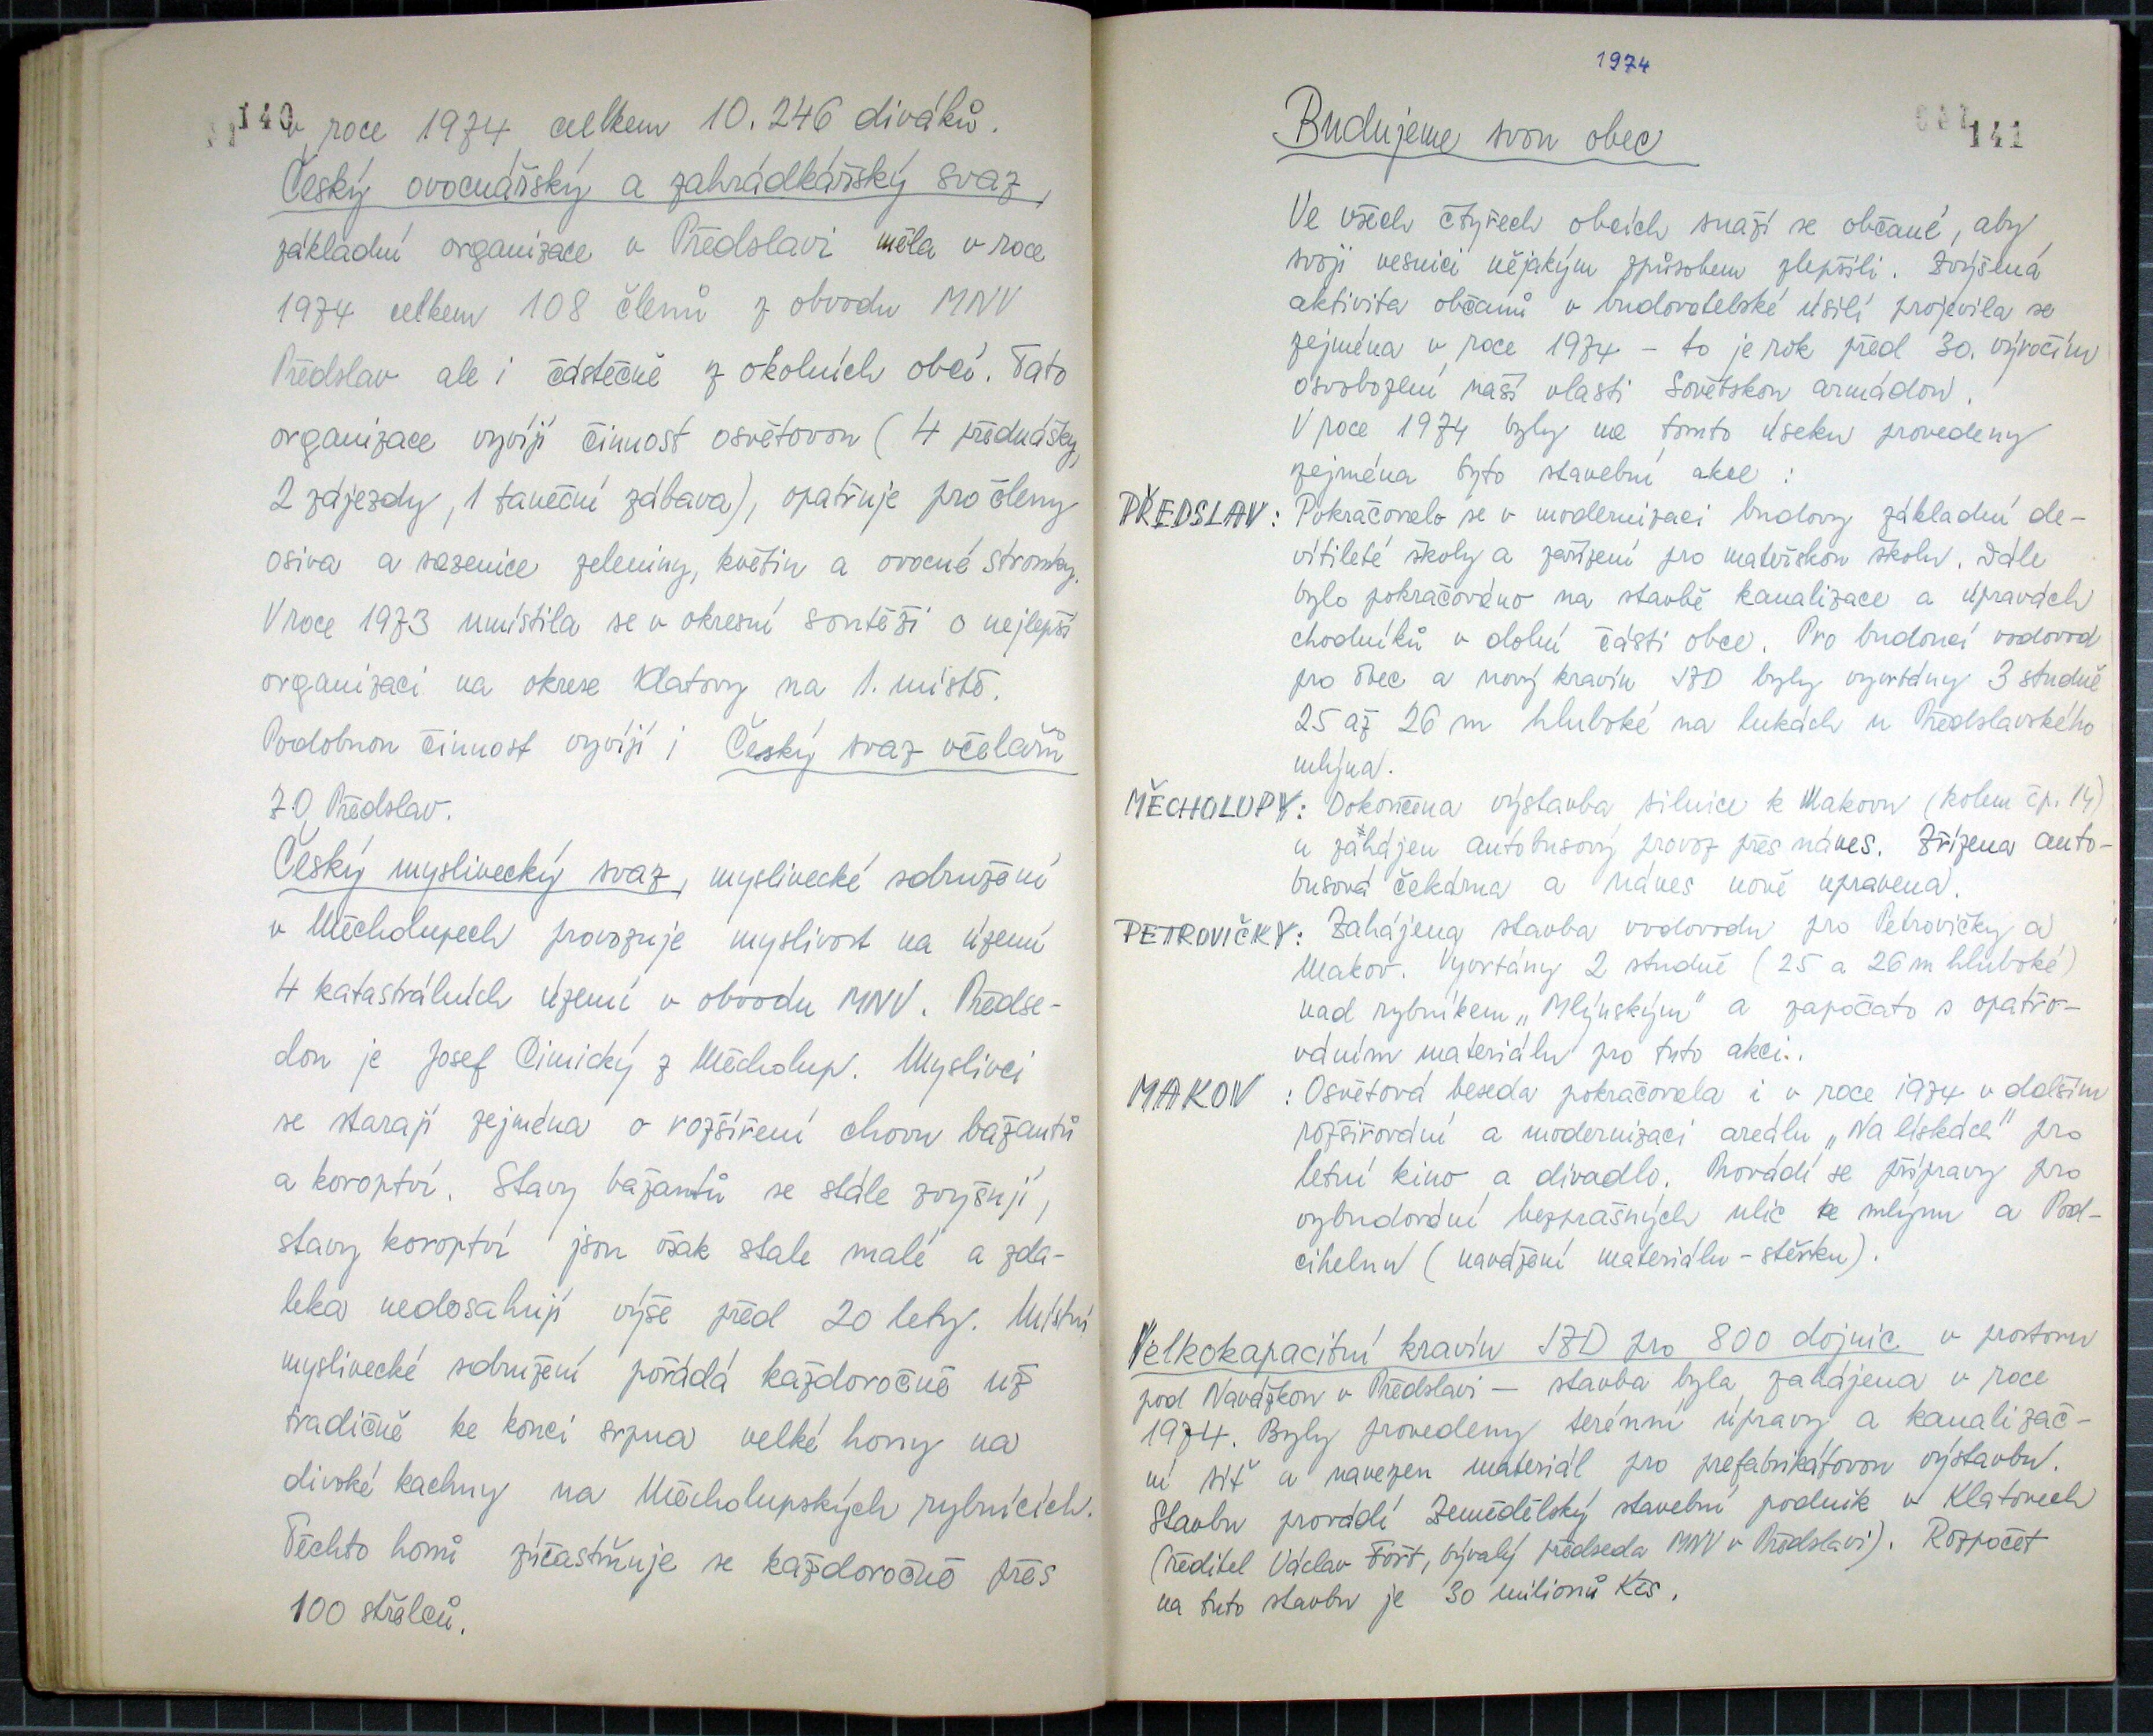 140
v roce 1974 celkem 10.246 diváků.
Český ovocnářský a zahrádkářský svaz,
základní organizace v Předslavi měla v roce
1974 celkem 108 členů z obvodu MNV
Předslav ale i částečně z okolních obcí. Tato
organizace vyvíjí činnost osvětovou (4 přednášky,
2 zájezdy, 1 taneční zábava), opatřuje pro členy
osiva a sazenice zeleniny, květin a ovocné stromky.
V roce 1973 umístila se v okresní soutěži o nejlepší
organizaci na okrese Klatovy na 1. místě.
Podobnou činnost vyvíjí i Český svaz včelařů
ZO Předslav.
Český myslivecký svaz, myslivecké sdružení
v Měcholupech provozuje myslivost na území
4 katastrálních území v obvodu MNV. Předse-
dou je Josef Cimický z Měcholup. Myslivci
se starají zejména o rozšíření chovu bažantů
a koroptví. Stavy bažantů se stále zvyšují,
stavy koroptví jsou však stále malé a zda-
leka nedosahují výše před 20 lety. Místní
myslivecké sdružení pořádá každoročně už
tradičně ke konci srpna velké hony na
divoké kachny na Měcholupských rybnících.
Těchto honů zúčastňuje se každoročně přes
100 střelců.
1974
141
Budujeme svou obec
Ve všech čtyřech obcích snaží se občané, aby
svoji vesnici nějakým způsobem zlepšili. Zvýšená
aktivita občanů v budovatelské úsilí projevila se
zejména v roce 1974 – to je rok před 30. výročím
osvobození naší vlasti Sovětskou armádou.
V roce 1974 byly na tomto úseku provedeny
zejména tyto stavební akce:
PŘEDSLAV: Pokračovalo se v modernizaci budovy základní de-
vítileté školy a zařízení pro mateřskou školu. Dále
bylo pokračováno na stavbě kanalizace a úpravách
chodníků v dolní části obce. Pro budoucí vodovod
pro obec a nový kravín JZD byly vyvrtány 3 studně
25 až 26 m hluboké na lukách u Předslavského
mlýna.
MĚCHOLUPY: Dokončena výstavba silnice k Makovu (kolem čp. 14)
a zahájen autobusový provoz přes náves. Zřízena auto-
busová čekárna a náves nově upravena.
PETROVIČKY: Zahájena stavba vodovodu pro Petrovičky a
Makov. Vyvrtány 2 studně (25 a 26 m hluboké)
nad rybníkem „Mlýnským" a započato s opatřo-
váním materiálu pro tuto akci.
MAKOV : Osvětová beseda pokračovala i v roce 1974 v dalším
rozšiřování a modernizaci areálu „Na lískách" pro
letní kino a divadlo. Provádí se přípravy pro
vybudování bezprašných ulic ke mlýnu a Pod-
cihelnu (navážení materiálu – štěrku).
Velkokapacitní kravín JZD pro 800 dojnic v prostoru
pod Navážkou v Předslavi – stavba byla zahájena v roce
1974. Byly provedeny terénní úpravy a kanalizač-
ní síť a navezen materiál pro prefabrikátovou výstavbu.
Stavbu provádí Zemědělský stavební podnik v Klatovech
(ředitel Václav Fořt, bývalý předseda MNV v Předslavi). Rozpočet
na tuto stavbu je 30 milionů Kčs.